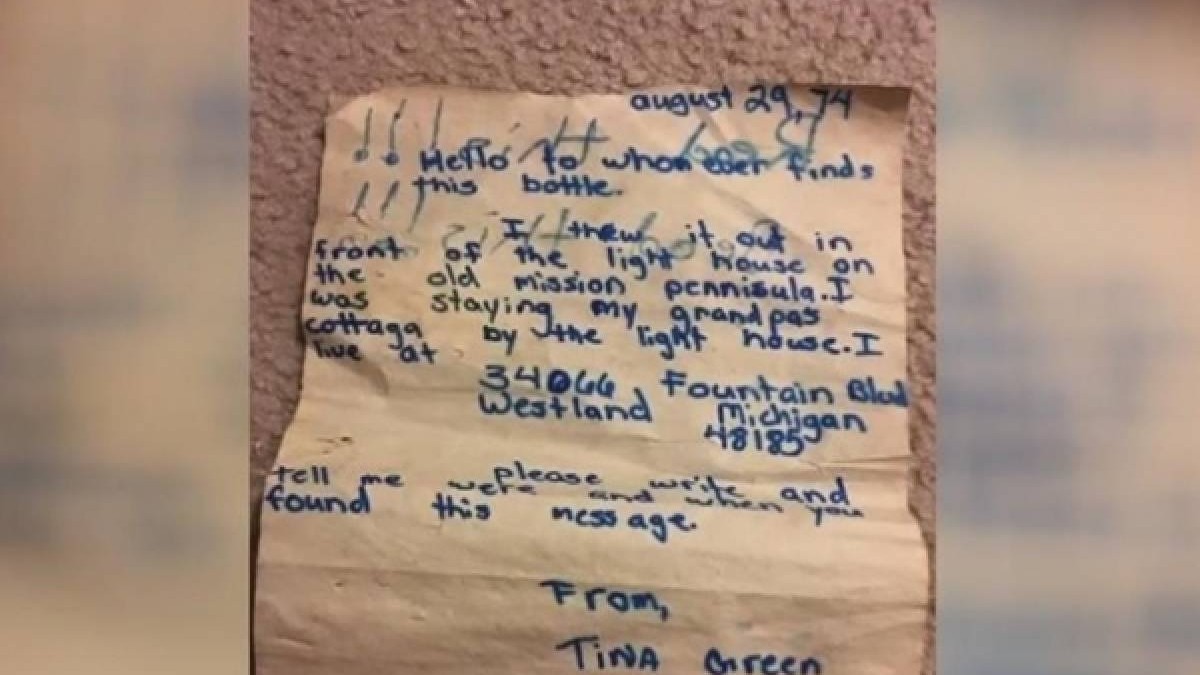 august 29, 74
!! Hello to whom ever finds
!!! this bottle.
I threw it out in
front of the light house on
the old mission pennisula. I
was staying my grandpas
cottaga by the light house. I
live at
34066 Fountain Blvd
Westland Michigan
48185
please write and
tell me were and when you
found this message.
From,
TINA Green